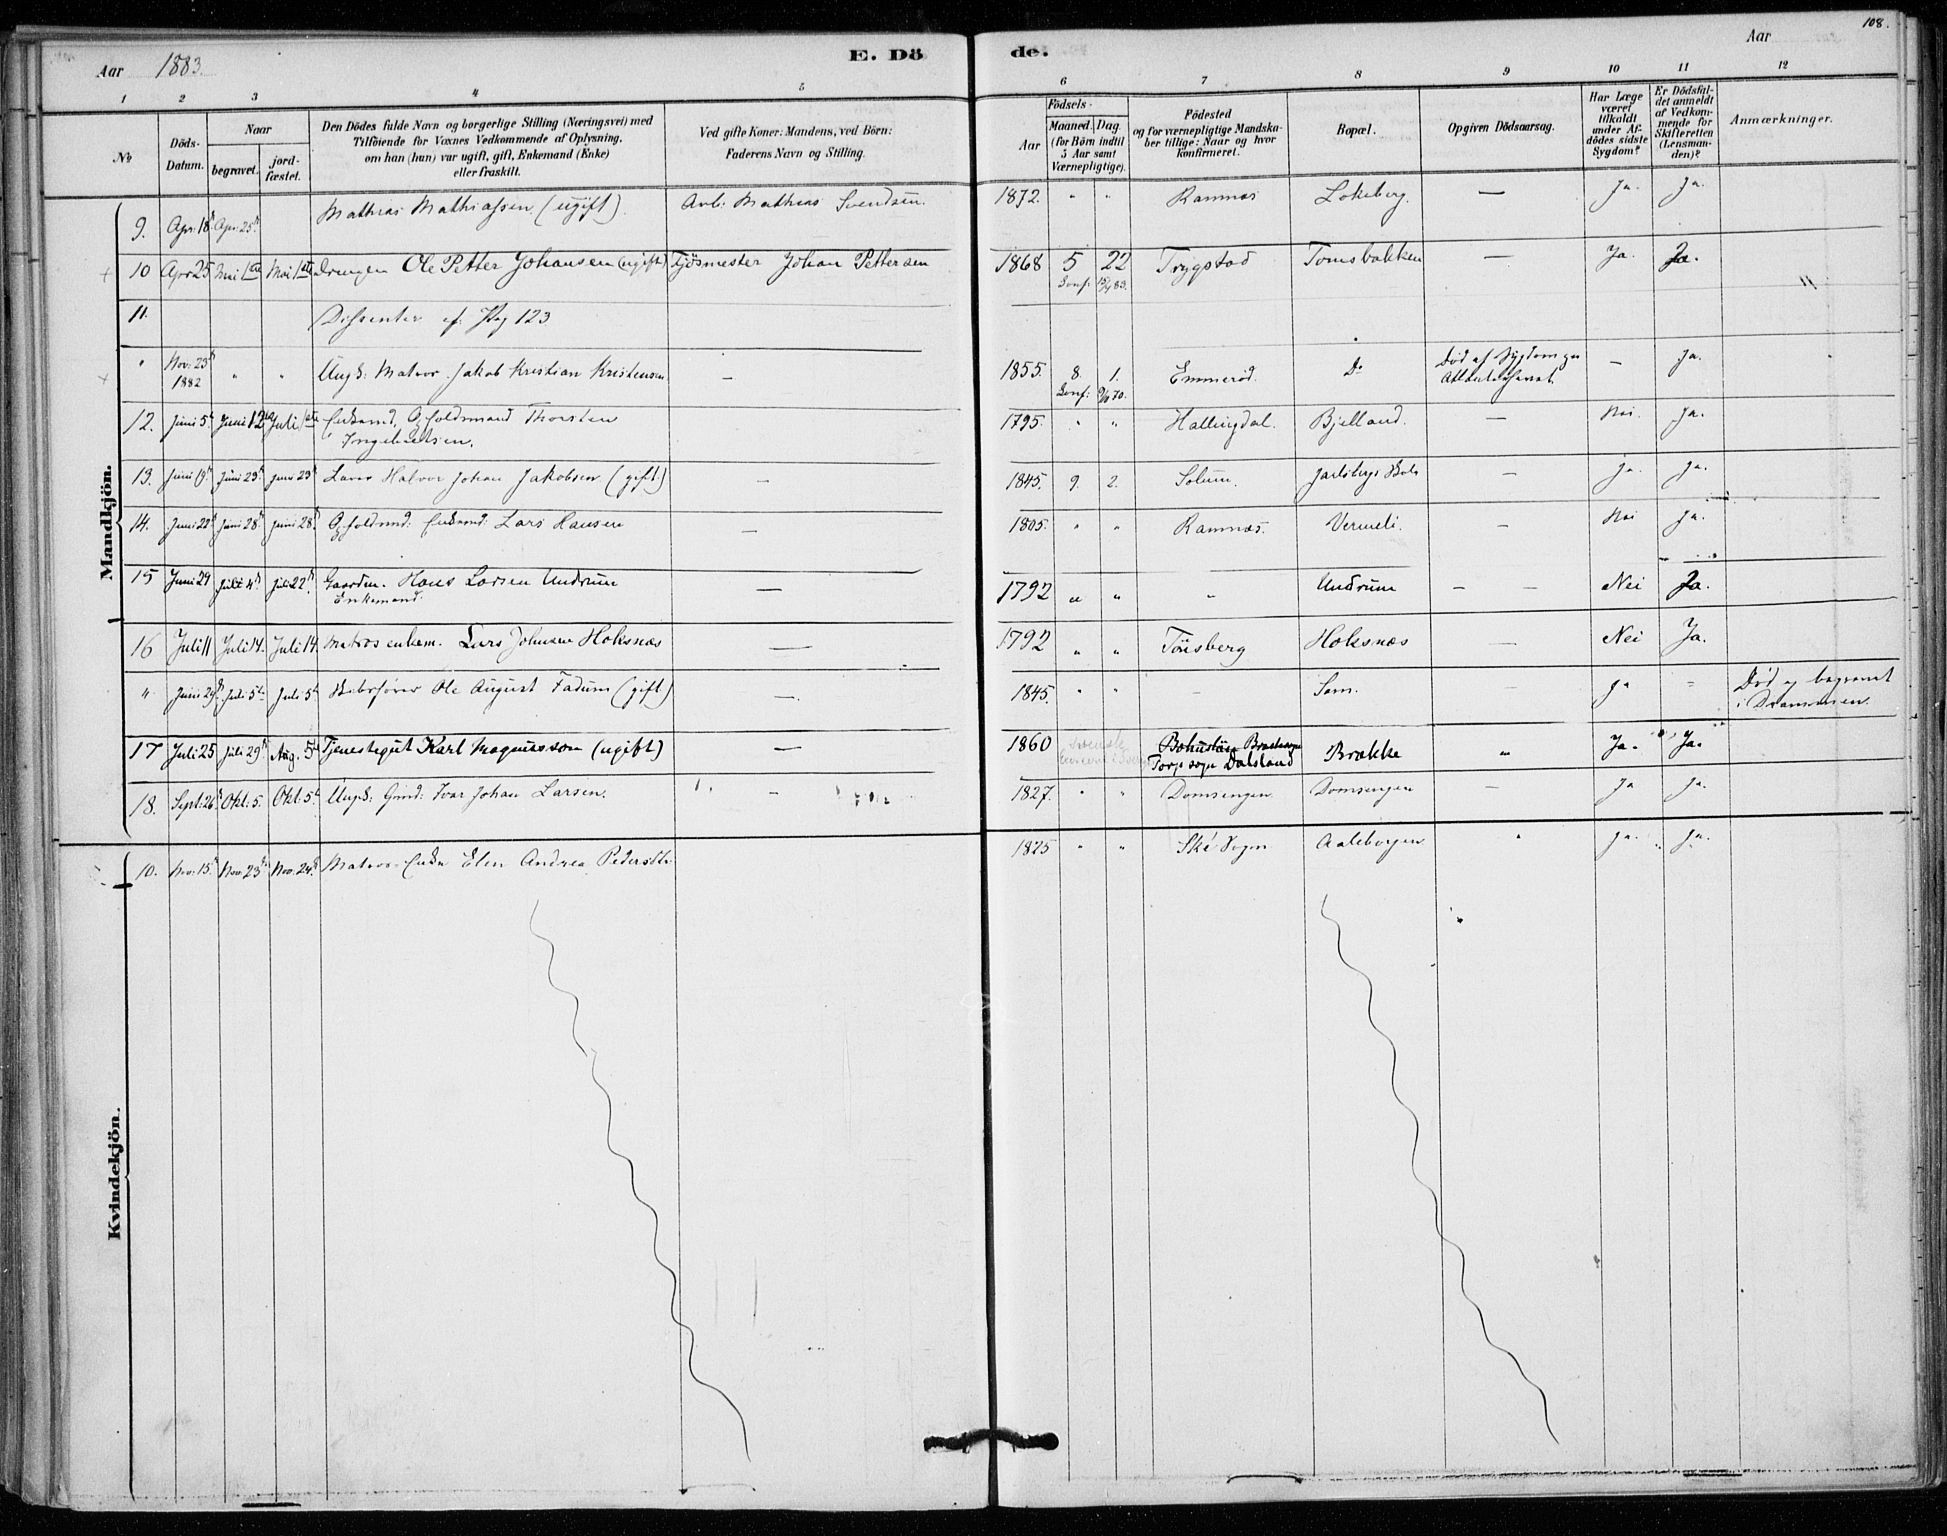 108.
Aar 1883.
E. Dö de.
Aar
1 2 3 4 5 6 7 8 9 10 11 12
No
Döds-Datum.
Naar
begravet.
jord-fæstet.
Den Dödes fulde Navn og borgerlige Stilling (Næringsvei) med
Tilföiende for Voxnes Vedkommende af Oplysning,
om han (hun) var ugift, gift, Enkemand (Enke)
eller fraskilt.
Ved gifte Koner: Mandens, ved Börn:
Faderens Navn og Stilling.
Födsels-
Aar
Maaned. Dag.
(for Börn indtil
5 Aar samt
Værnepligtige).
Födested
og for værnepligtige Mandska-
ber tillige: Naar og hvor
konfirmeret.
Bopæl.
Opgiven Dödsaarsag.
Har Læge
været
tilkaldt
under Af-
dödes sidste
Sygdom?
Er Dödsfal-
det anmeldt
af Vedkom-
mende for
Skifteretten
(Lensman-
den)?
Anmærkninger.
Mandkjön.
9. Apr: 18 Apr: 25 Mathias Mathiassen (ugift) Arb: Mathias Svendsen. 1872. " " Ramnæs Lokeberg. — Ja Ja.
10 Apr 25 Mai 1ste Mai 1ste Drengen Ole Petter Johansen (ugift) Johan Pettersen 1868 5 22 Trygstad Tomsbakken — Ja. Ja.
Conf:
11. Dissenter cf. Pag 123
" Nov: 23 1882 " " Ungk: Matros Jakob Kristian Kristensen — 1855. 8. 1. Emmerød. Do Død af Sygdom — Ja.
Conf:
12. Juni 5 Juni 12 Juli 1ste Enkemd. Thorsten
Ingebretsen. 1795. " " Hallingdal. Bjelland. — Nei. Ja.
13. Juni 19 Juni 23 Juni 23 Halvor Johan Jakobsen (gift) — 1845. 9. 2. Solum. Jarlsbergs — Ja. Ja.
14. Juni 22 Juni 28 Juni 28 Enkemd: Lars Hansen — 1805. " " Ramnæs. Vermeli. — Nei Ja.
15 Juni 29 Juli 4 Juli 22 Gaardm. Hans Larsen Undrum
Enkemand. — 1792 " " " Undrum — — Nei Ja.
16 Juli 11 Juli 14. Juli 14. Matros enkem. Lars Johnsen Hoksnæs — 1792 " " Tönsberg Hoksnæs — Nei Ja.
" Juni 29 Juli 5 Juli 5 Ole August Fadum (gift) — 1845. " " — Sem. — Ja " Død og begravet
i Drammen.
17 Juli 25 Juli 29 Aug. 5 Tjenestegut Karl Magnusson (ugift) — 1860 Bohuslän
Torp sogn Dalsland Brække " Ja. Ja.
18. Sept: 26 Okt: 5. Okt: 5 Ungk: Ivar Johan Larsen. — 1827. " " Domsengen Domsengen — Ja Ja.
Kvindekjön.
10. Nov: 15 Nov: 23 Nov: 24 Matros-Enke Elen Andrea 1825 " " Sogn " Ja. Ja.